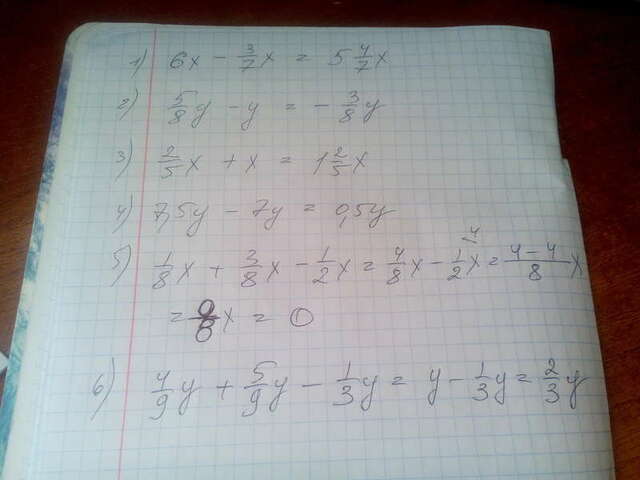 1) 6x - 3/7 x = 5 4/7 x
2) 5/8 y - y = - 3/8 y
3) 2/5 x + x = 1 2/5 x
4) 7,5y - 7y = 0,5y
5) 1/8 x + 3/8 x - 1/2 x = 4/8 x - 1/2 x ⁴ = (4-4)/8 x
= 0/8 x = 0
6) 4/9 y + 5/9 y - 1/3 y = y - 1/3 y = 2/3 y